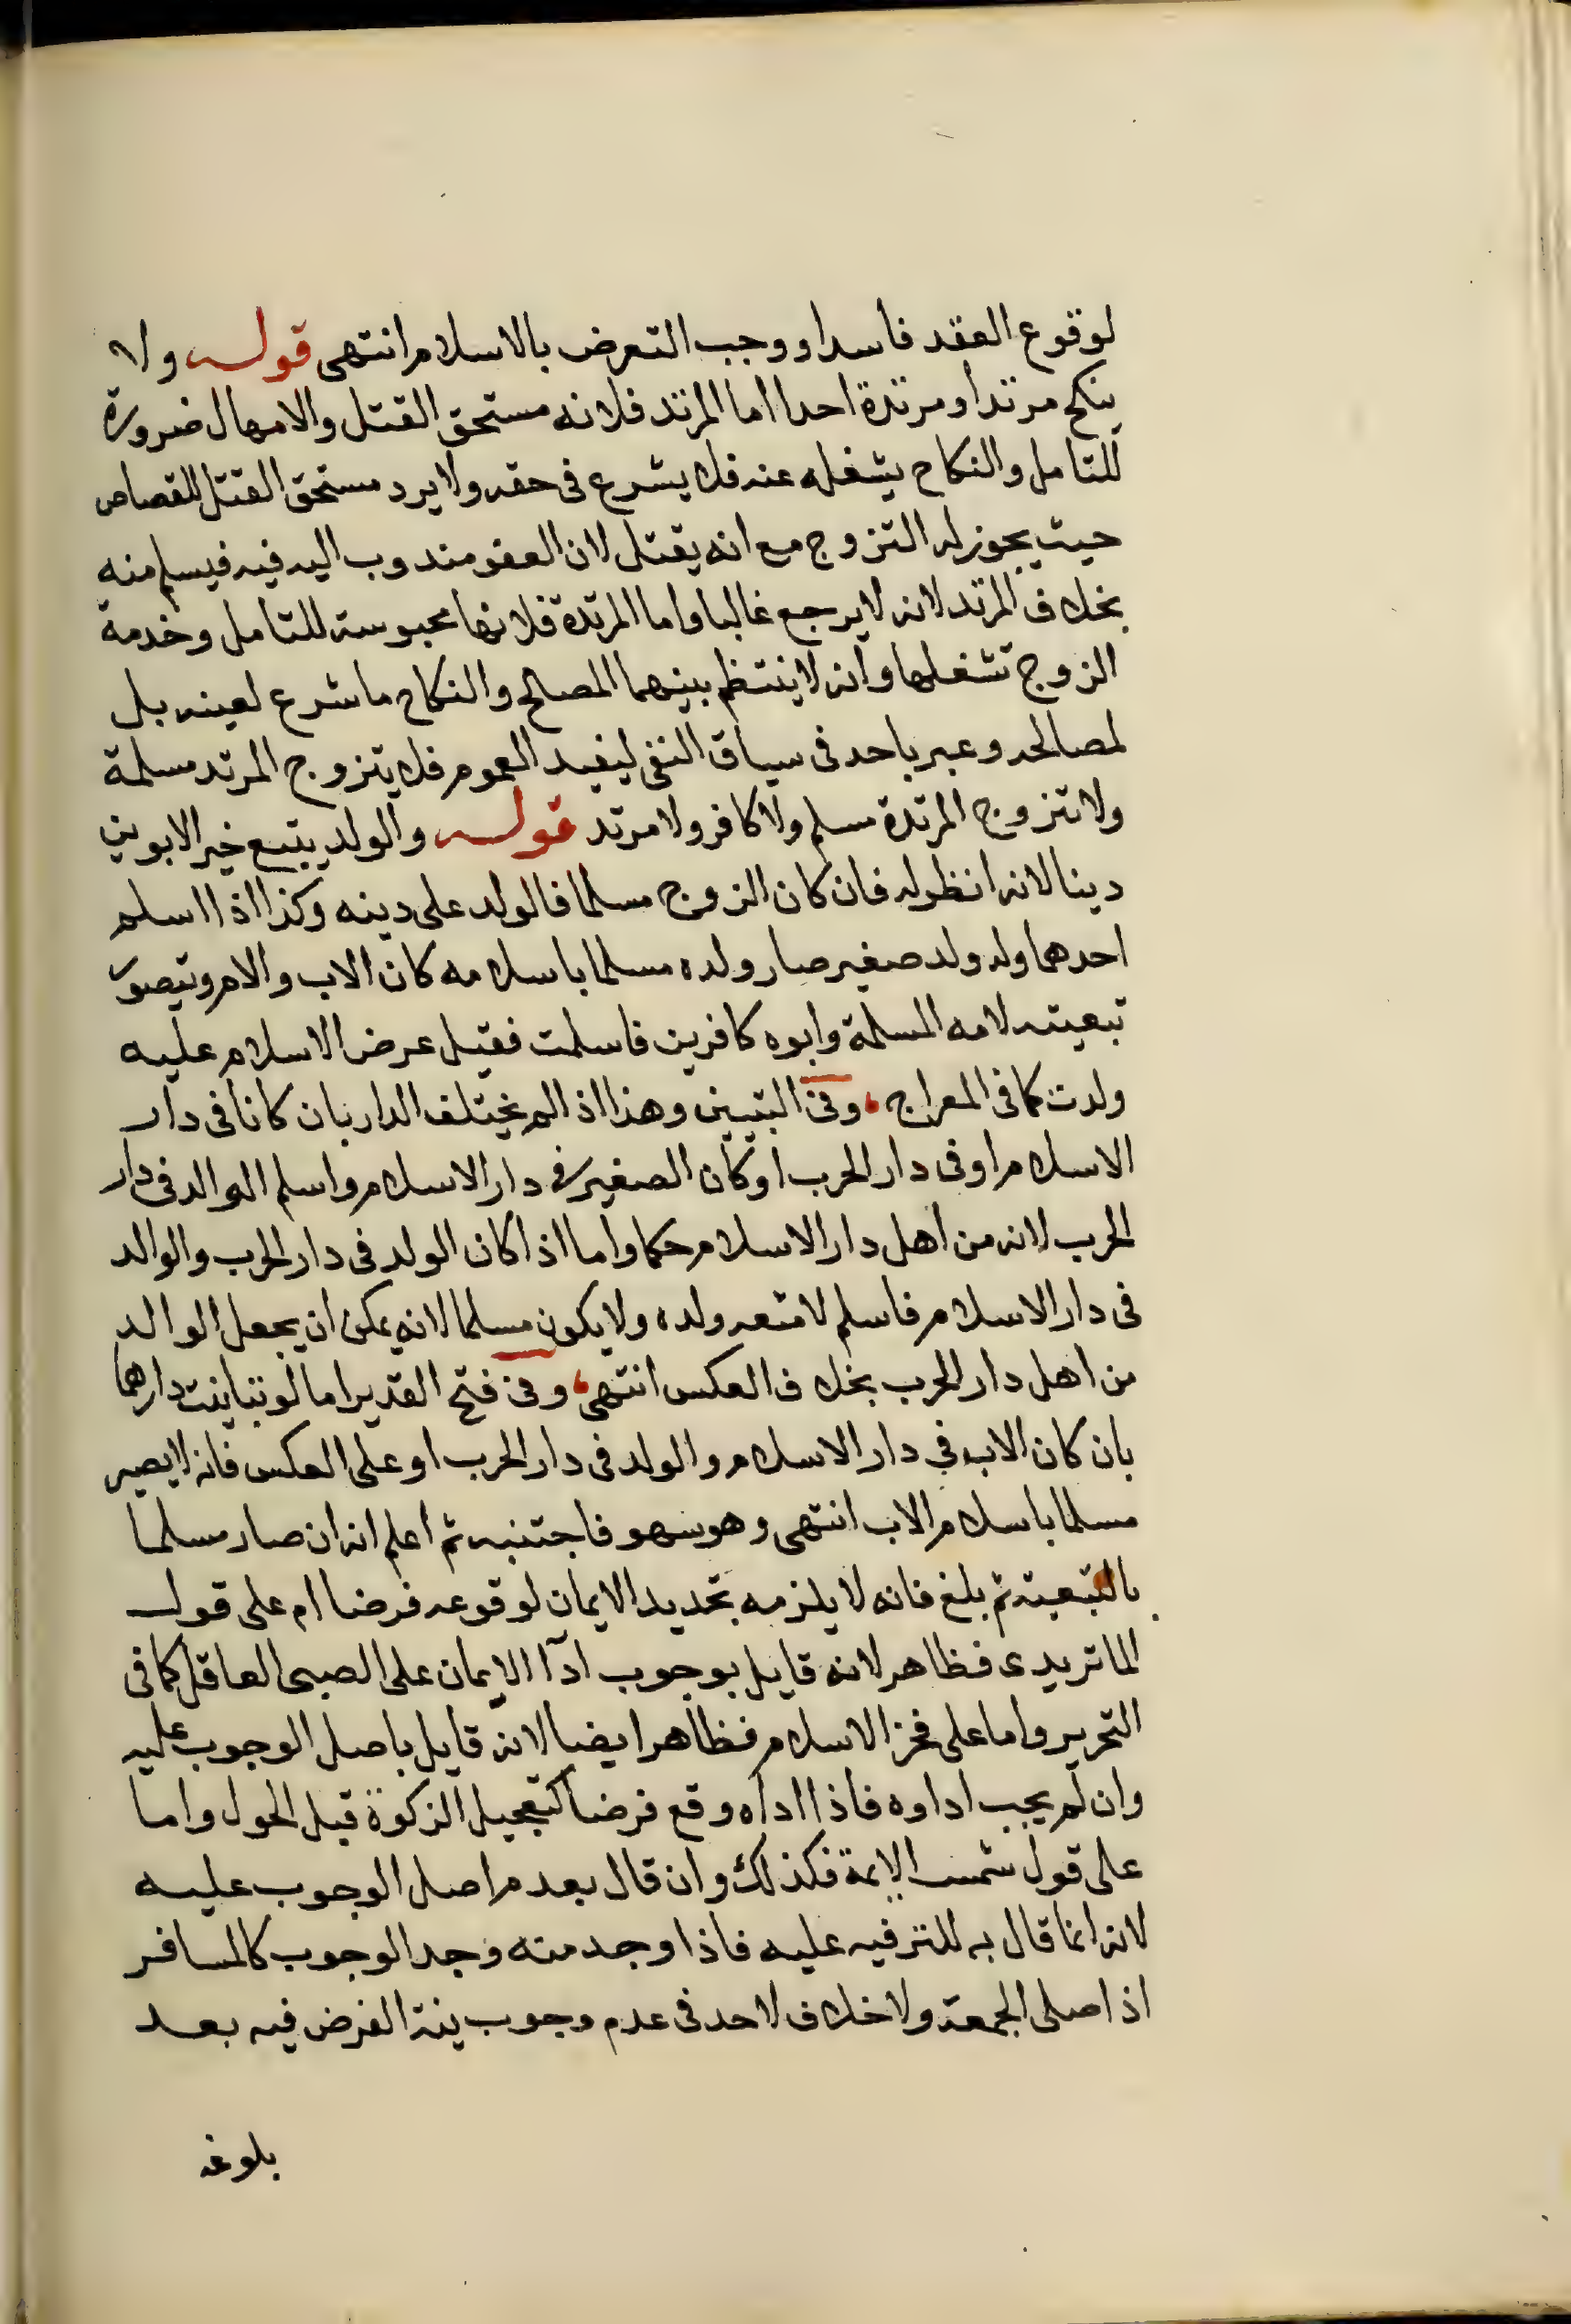 لوقوع العقد فاسدا ووجب التعرض بالاسلام انتهى قوله ولا
ينكح مرتد او مرتدة احدا اما المرتد فلانه مستحق القتل والامهال ضرورة
للتامل والنكاح يشغله عنه فلا يشرع فى حقه ولا يرد مستحق القتل للقصاص
حيث يجوز له التزوج مع انه يقتل لان العفو مندوب اليه فيه فيسلم منه
بخلاف المرتد لانه لا يرجع غالبا واما المرتدة فلانها محبوسة للتامل وخدمة
الزوج تشغلها وانه لا ينتظم بينهما المصالح والنكاح ما شرع لعينه بل
لمصالحه وعبر باحد فى سياق النفى ليفيد العموم فلا يتزوج المرتد مسلمة
ولا تتزوج المرتدة مسلم ولا كافر ولا مرتد قوله والولد يتبع خير الابوين
دينا لانه انظر له فان كان الزوج مسلما فالولد على دينه وكذا اذا اسلم
احدهما وله ولد صغير صار ولده مسلما باسلامه كان الاب والام ويتصور
تبعيته لامه المسلمة وابوه كافرين فاسلمت فقبل عرض الاسلام عليه
ولدت كما فى المعراج وفى التبيين وهذا اذا لم يختلف الدار بان كانا فى دار
الاسلام او فى دار الحرب او كان الصغير فى دار الاسلام واسلم الوالد فى دار
الحرب لانه من اهل دار الاسلام حكما واما اذا كان الولد فى دار الحرب والوالد
فى دار الاسلام فاسلم لا يتبعه ولده ولا يكون مسلما لانه يمكن ان يجعل الوالد
من اهل دار الحرب بخلاف العكس انتهى وفى فتح القدير اما لو تباينت دارهما
بان كان الاب فى دار الاسلام والولد فى دار الحرب او على العكس فانه لا يصير
مسلما باسلام الاب انتهى وهو سهو فاجتنبه ثم اعلم انه ان صار مسلما
بالتبعية ثم بلغ فانه لا يلزمه تجديد الايمان لوقوعه فرضا ام على قول
الماتريدى فظاهر لانه قايل بوجوب ادآ الايمان على الصبى العاقل كما فى
التحرير واما على فخر الاسلام فظاهر ايضا لانه قايل باصل الوجوب عليه
وان لم يجب اداوه فاذا اداه وقع فرضا كتعجيل الزكوة قبل الحول واما
على قول شمس الايمة فكذلك وان قال بعدم اصل الوجوب عليه
لانه انما قال به للترفيه عليه فاذا وجد منه وجد الوجوب كالمسافر
اذا صلى الجمعة ولا خلاف لاحد فى عدم وجوب نية الفرض فيه بعد
بلوغه